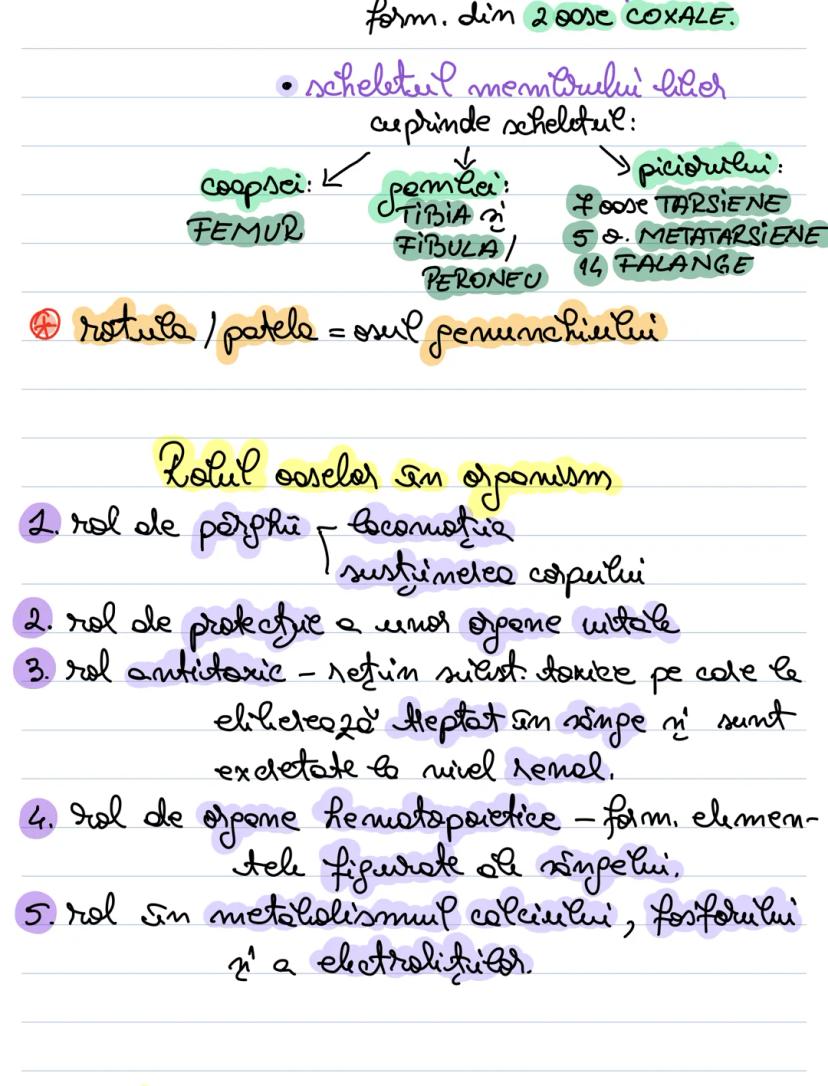 form. din 2 oase COXALE.
• scheletul membrului liber
cuprinde scheletul:
coapsei: gambei: piciorului:
FEMUR TIBIA și 7 oase TARSIENE
FIBULA / 5 o. METATARSIENE
PERONEU 14 FALANGE
* rotula / patela = osul genunchiului
Rolul oaselor în organism
1. rol de pârghii - locomoția
susținerea corpului
2. rol de protecție a unor organe vitale
3. rol antitoxic - rețin subst. toxice pe care le
eliberează treptat în sânge și sunt
excretate la nivel renal.
4. rol de organe hematopoietice - form. elemen-
tele figurate ale sângelui.
5. rol în metabolismul calciului, fosforului
și a electroliților.